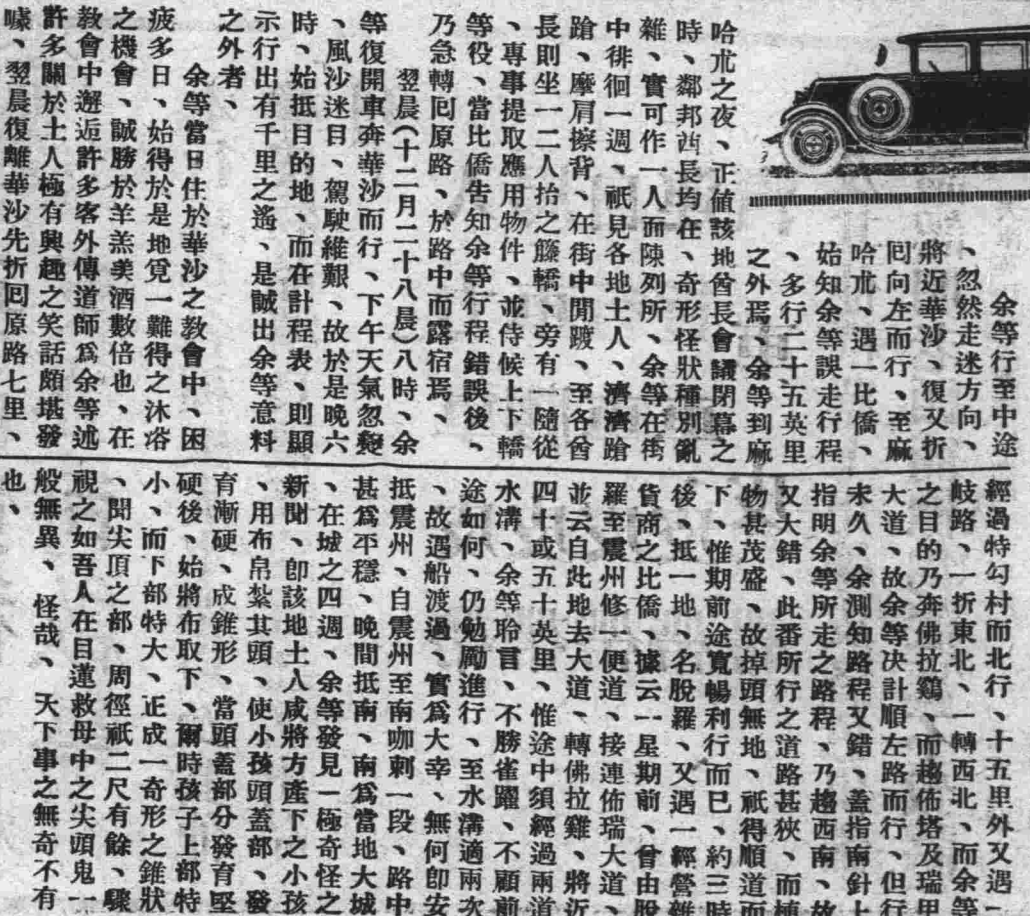 余等行至中途
、忽然走迷方向、
將近華沙、復又折
囘向左而行、至麻
哈朮、遇一比僑、
始知余等誤走行程
、多行二十五英里
之外焉、余等到麻
哈朮之夜、正値該地酋長會議閉幕之
時、鄰邦酋長均在、奇形怪狀種別亂
雜、實可作一人面陳列所、余等在街
中徘徊一週、祇見各地土人、濟濟蹌
蹌、摩肩擦背、在街中閒踱、至各酋
長則坐一二人抬之籐轎、旁有一隨從
、專事提取應用物件、並侍候上下轎
等役、當比僑告知余等行程錯誤後、
乃急轉囘原路、於路中而露宿焉、
翌晨(十二月二十八晨)八時、余
等復開車奔華沙而行、下午天氣忽變
、風沙迷目、駕駛維艱、故於是晚六
時、始抵目的地、而在計程表、則顯
示行出有千里之遙、是誠出余等意料
之外者、
余等當日住於華沙之教會中、困
疲多日、始得於是地覓一難得之沐浴
之機會、誠勝於羊羔美酒數倍也、在
教會中邂逅許多客外傳道師爲余等述
許多關於土人極有興趣之笑話頗堪發
噱、翌晨復離華沙先折囘原路七里、
經過特勾村而北行、十五里外又遇一
岐路、一折東北、一轉西北、而余等
之目的乃奔佛拉鷄、而趨佈塔及瑞甲
大道、故余等決計順左路而行、但行
未久、余測知路程又錯、蓋指南針上
指明余等所走之路程、乃趨西南、故
又大錯、此番所行之道路甚狹、而植
物甚茂盛、故掉頭無地、祇得順道而
下、惟期前途寬暢利行而已、約三時
後、抵一地、名脫羅、又遇一經營雜
貨商之比僑、據云一星期前、曾由脫
羅至震州修一便道、接連佈瑞大道、
並云自此地去大道、轉佛拉雞、將近
四十或五十英里、惟途中須經過兩道
水溝、余等聆言、不勝雀躍、不顧前
途如何、仍勉勵進行、至水溝適兩次
、故遇船渡過、實爲大幸、無何卽安
抵震州、自震州至南咖剌一段、路中
甚爲平穩、晚間抵南、南爲當地大城
、在城之四週、余等發見一極奇怪之
新聞、卽該地土人咸將方產下之小孩
、用布帛紮其頭、使小孩頭蓋部、發
育漸硬、成錐形、當頭蓋部分發育堅
硬後、始將布取下、爾時孩子上部特
小、而下部特大、正成一奇形之錐狀
、聞尖頂之部、周徑祇二尺有餘、驟
視之如吾人在目蓮救母中之尖頭鬼一
般無異、怪哉、天下事之無奇不有
也、